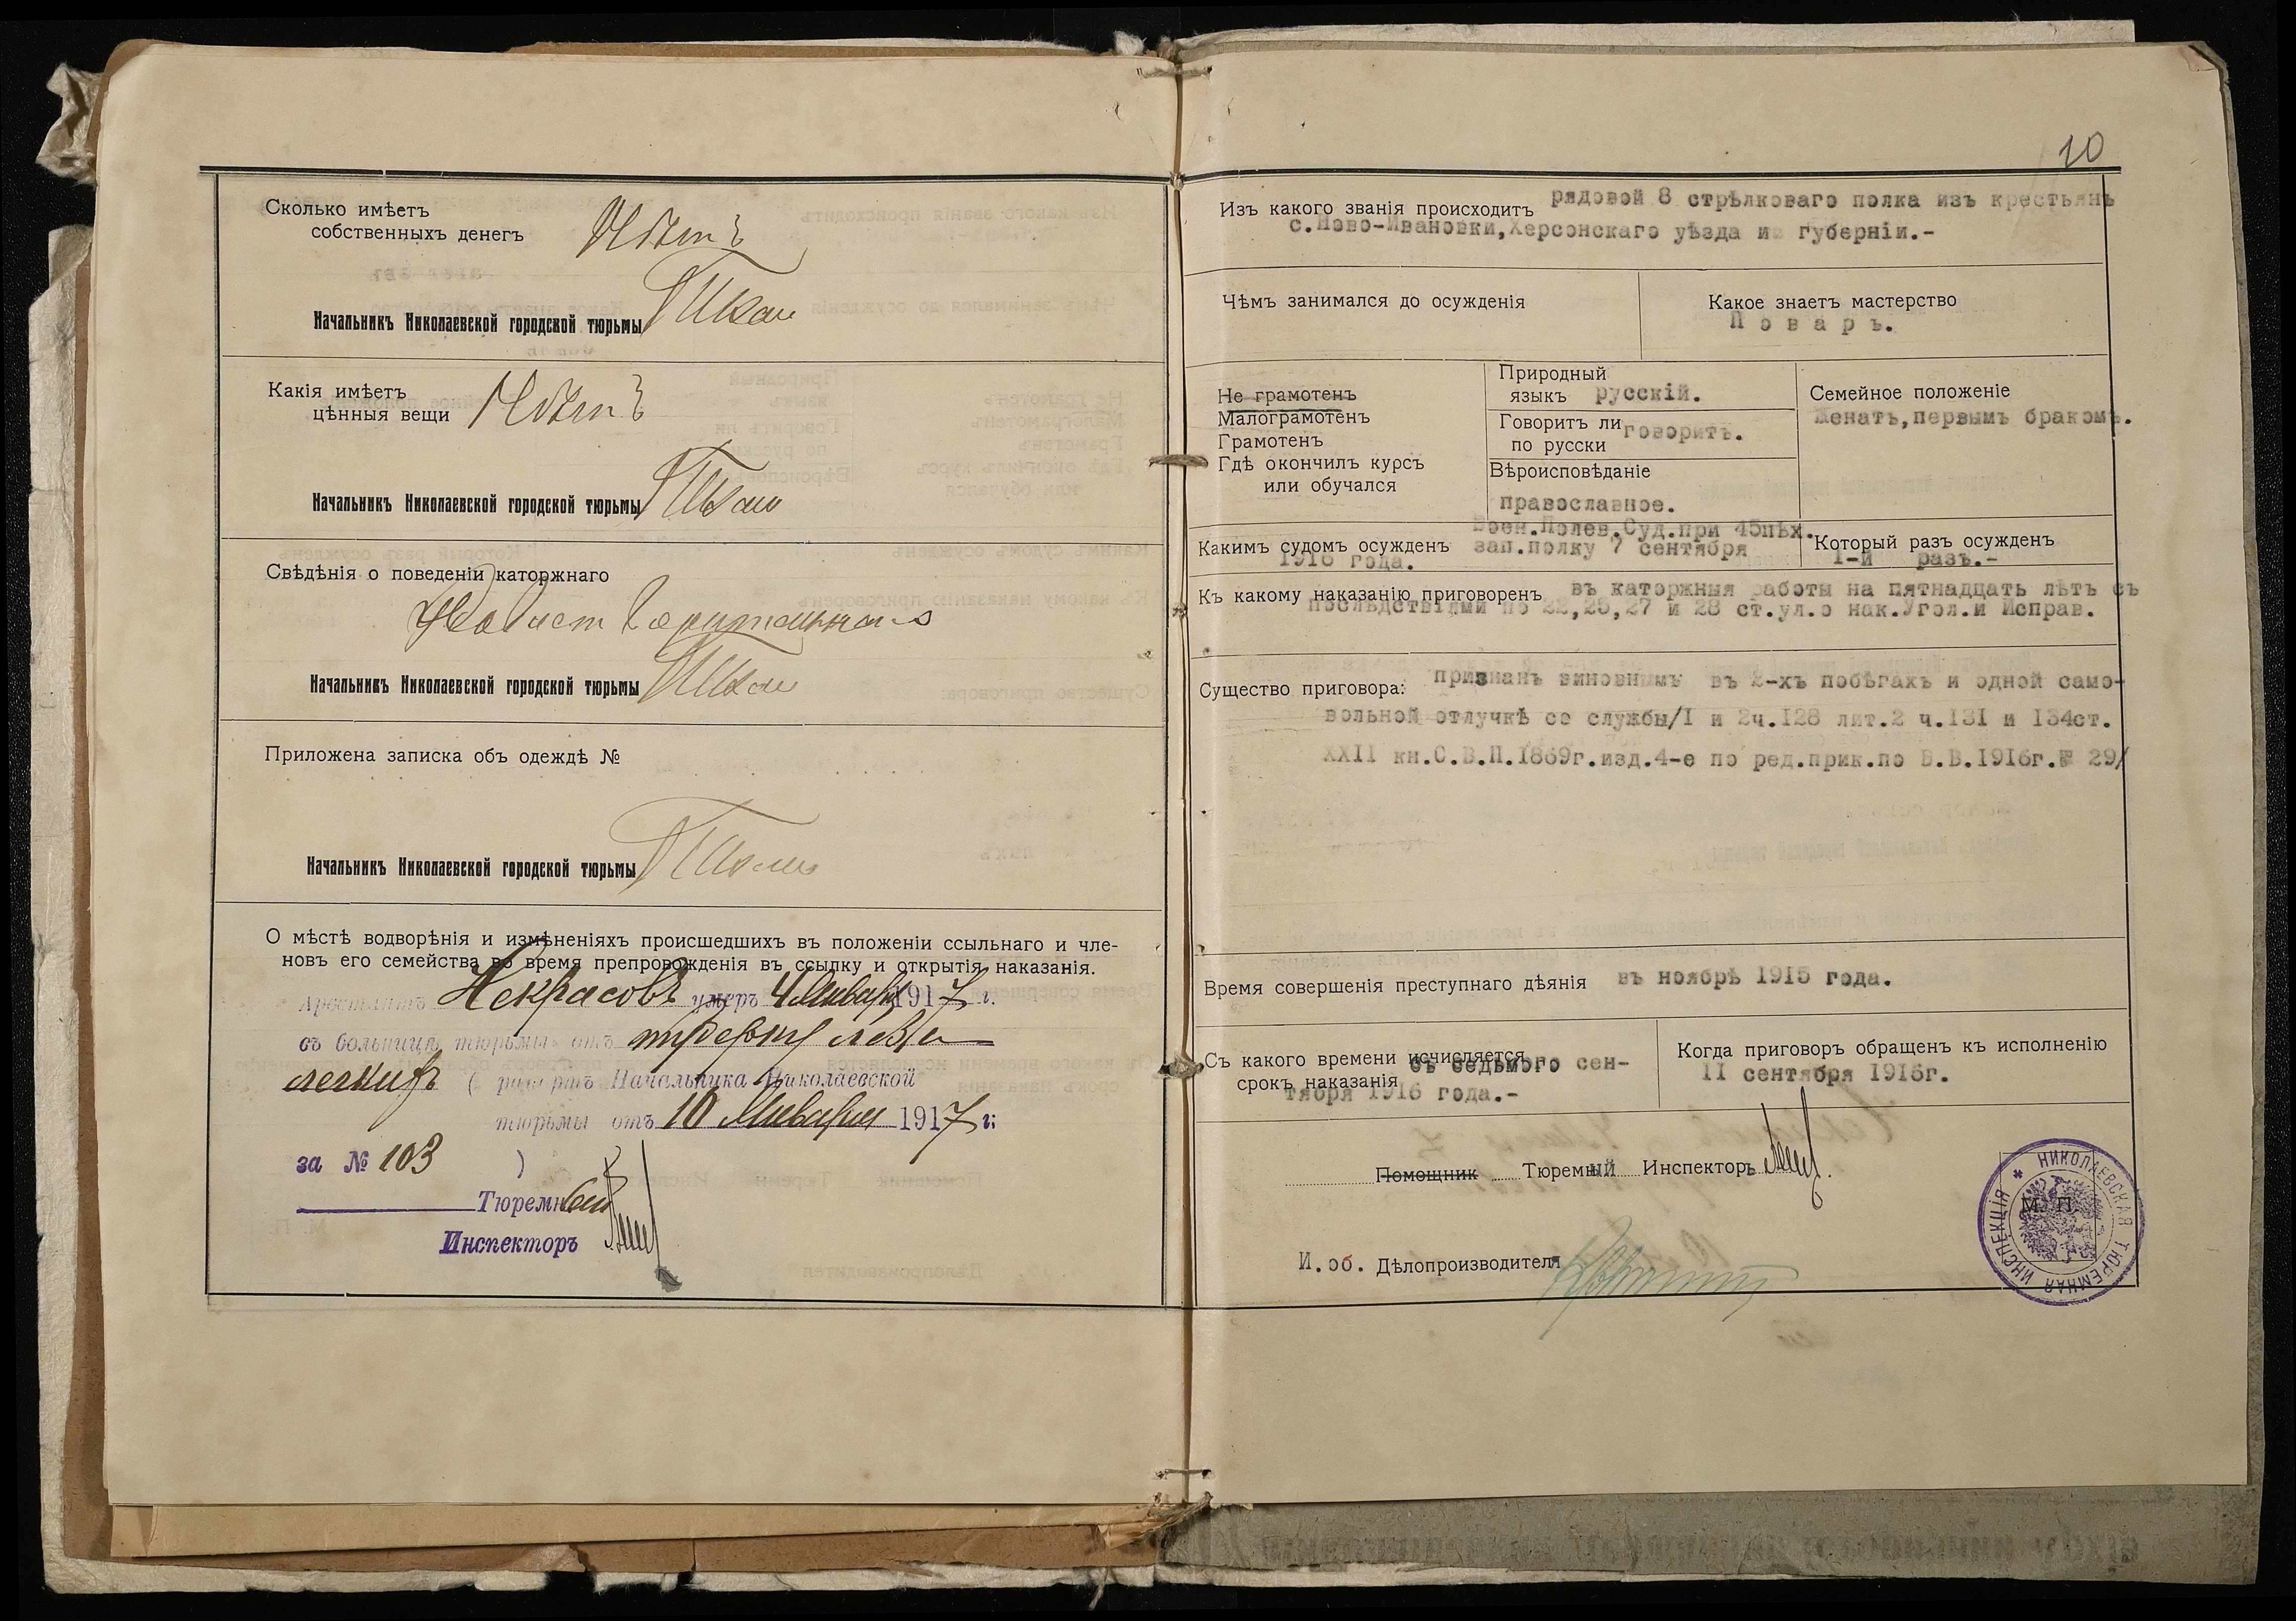 Сколько имѣетъ
собственныхъ денегъ
Нѣтъ
Начальникъ Николаевской городской тюрьмы
Какія имѣетъ
цѣнныя вещи Нѣтъ
Начальникъ Николаевской городской тюрьмы
Свѣдѣнія о поведеніи каторжнаго
Начальникъ Николаевской городской тюрьмы
Приложена записка объ одеждѣ №
Начальникъ Николаевской городской тюрьмы
О мѣстѣ водворѣнія и измѣненіяхъ происшедшихъ въ положеніи ссыльнаго и чле-
новъ его семейства во время препровожденія въ ссылку и открытія наказанія.
Арестантъ Некрасовъ умеръ 4 Января 1917 г.
въ больницѣ тюрьмы отъ туберкулеза
легкихъ ( рапортъ Начальника Николаевской
тюрьмы отъ 10 Января 1917 г;
за № 103 )
Тюремный
Инспекторъ
10
Изъ какого званія происходитъ рядовой 8 стрѣлковаго полка изъ крестьянъ
с.Ново-Ивановки,Херсонскаго уѣзда и губерніи.-
Чѣмъ занимался до осужденія
Какое знаетъ мастерство
Поваръ.
Не грамотенъ
Малограмотенъ
Грамотенъ
Гдѣ окончилъ курсъ
или обучался
Природный
языкъ русскій.
Говоритъ ли
по русски говоритъ.
Вѣроисповѣданіе
православное.
Семейное положеніе
женатъ,первымъ бракомъ.
Какимъ судомъ осужденъ Воен.Полев.Суд.при 45пѣх.
зап.полку 7 сентября
1916 года.
Который разъ осужденъ
I-й разъ.-
Къ какому наказанію приговоренъ въ каторжныя работы на пятнадцать лѣтъ съ
послѣдствіями по 22,25,27 и 28 ст.ул.о нак.Угол.и Исправ.
Существо приговора: признанъ виновнымъ въ 2-хъ побѣгахъ и одной само-
вольной отлучкѣ со службы/I и 2ч.128 лит.2 ч.131 и 134ст.
XXII кн.С.В.П.1869г.изд.4-е по ред.прик.по В.В.1916г.№ 29/
Время совершенія преступнаго дѣянія въ ноябрѣ 1915 года.
Съ какого времени исчисляется
срокъ наказанія съ седьмого сен-
тября 1916 года.-
Когда приговоръ обращенъ къ исполненію
11 сентября 1916г.
Помощникъ Тюремный Инспекторъ
М. П.
НИКОЛАЕВСКАЯ ТЮРЕМНАЯ ИНСПЕКЦІЯ
И.об. Дѣлопроизводителя